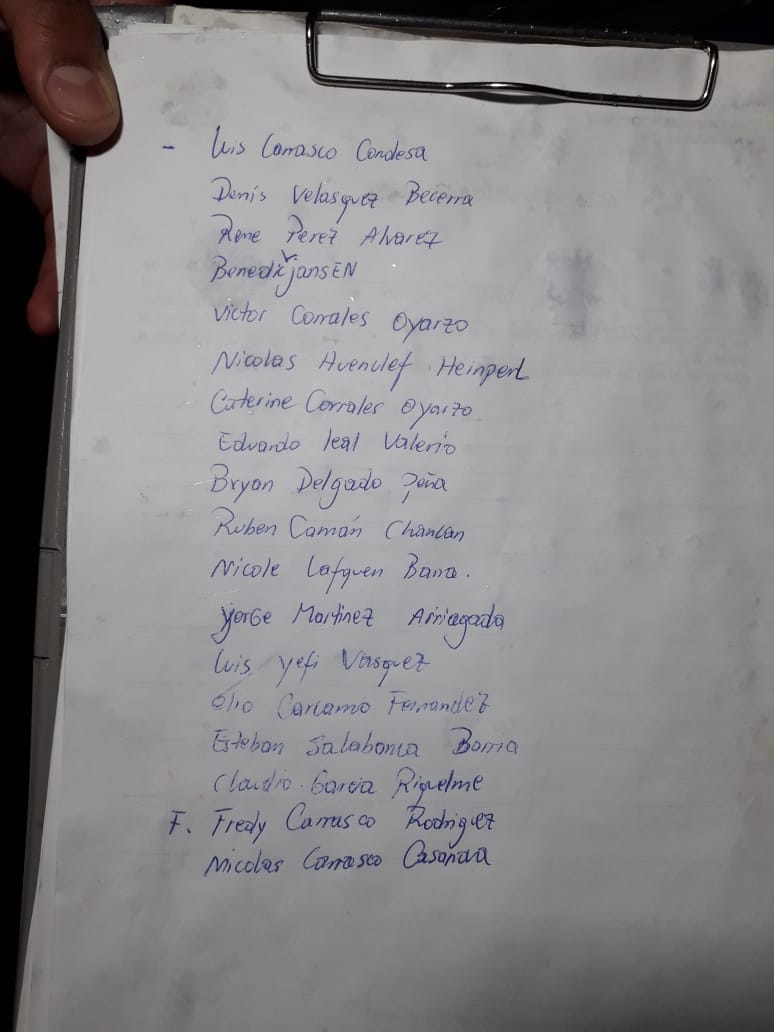 - Luis Carrasco Condesa
Denis Velasquez Becerra
Rene Perez Alvarez
Benedic jansEN
Victor Corrales Oyarzo
Nicolas Heinperl
Caterine Corrales Oyarzo
Eduardo leal Valerio
Bryan Delgado Peña
Ruben Camán Chancan
Nicole Lafquen Barra.
yorGe Martinez Arriagada
Luis yefi Vasquez
Carcamo Fernandez
Esteban Barria
Claudio Garcia Riquelme
F. Fredy Carrasco Rodriguez
Nicolas Carrasco Casanova